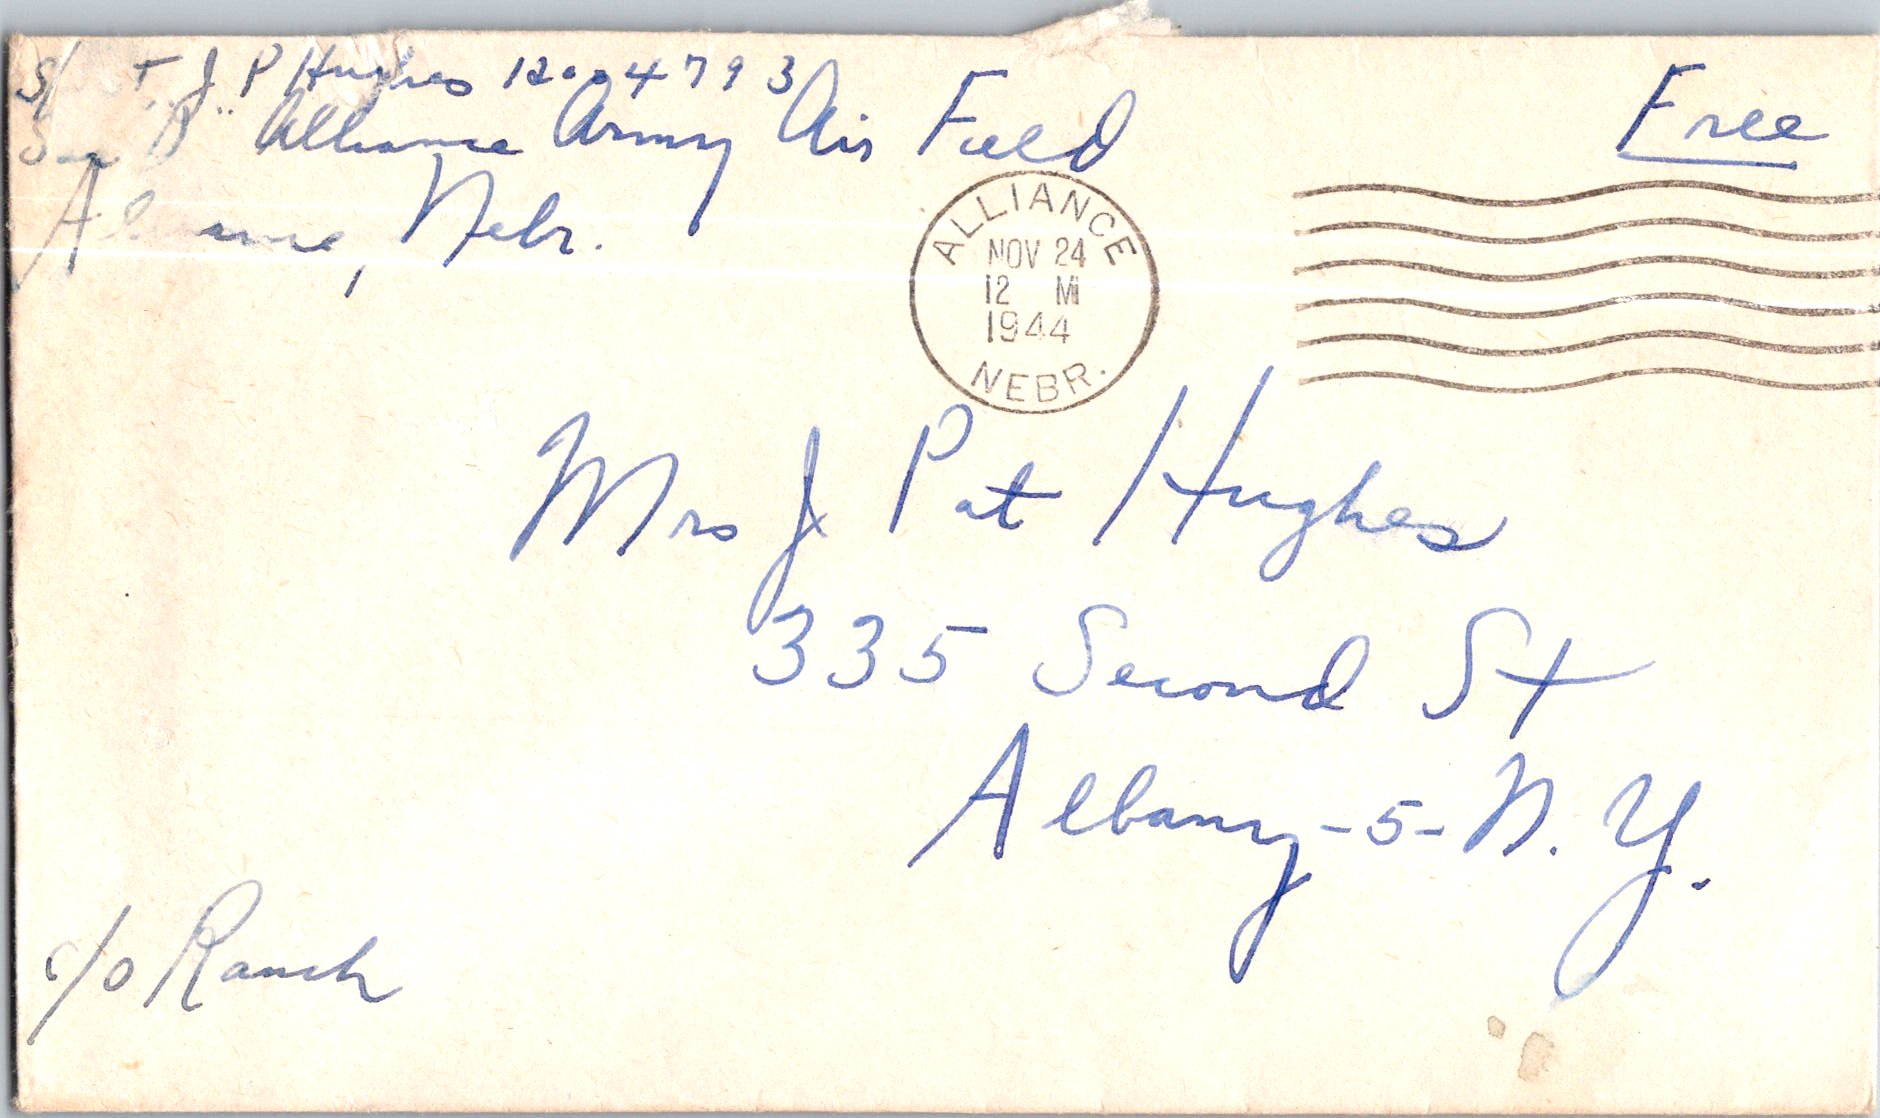 S/ T. J P Hughes 12004793
"B" Alliance Army Air Field
Alliance, Nebr.
Free
ALLIANCE
NOV 24
12 M
1944
NEBR.
Mrs J Pat Hughes
335 Second St
Albany -5- N. Y.
c/o Ranch